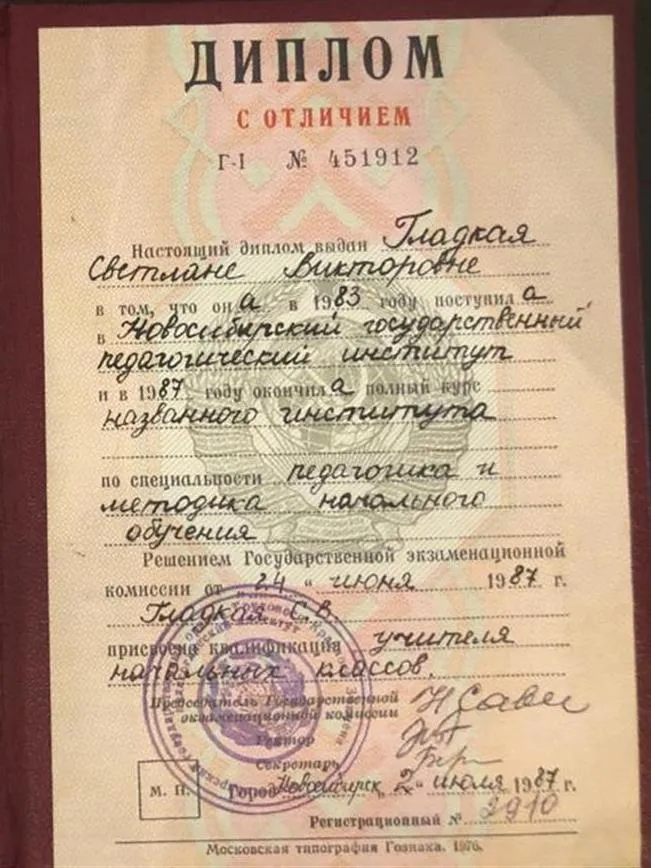 ДИПЛОМ
С ОТЛИЧИЕМ
Г-I № 451912
Настоящий диплом выдан Гладкая
Светлане Викторовне
в том, что он а в 1983 году поступил а
в Новосибирский государственный
педагогический институт
и в 1987 году окончил а полный курс
названного института
по специальности педагогика и
методика начального
обучения
Решением Государственной экзаменационной
комиссии от 24 " июня 1987 г.
Гладкая С.В.
присвоена квалификация учителя
начальных классов.
Председатель Государственной
экзаменационной комиссии
Ректор
Секретарь
М. П. Город Новосибирск, 2 " июля 1987 г.
Регистрационный № 2910
Московская типография Гознака. 1976.